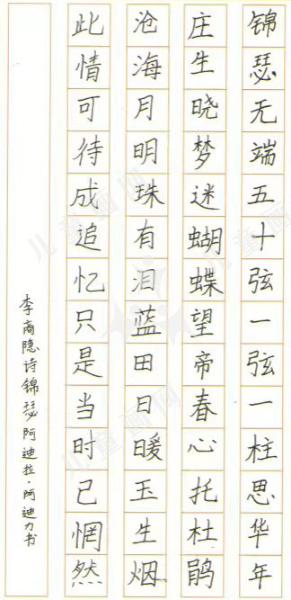 锦瑟无端五十弦一弦一柱思华年
庄生晓梦迷蝴蝶望帝春心托杜鹃
沧海月明珠有泪蓝田日暖玉生烟
此情可待成追忆只是当时已惘然
李商隐诗锦瑟 阿迪拉·阿迪力书
儿童画网